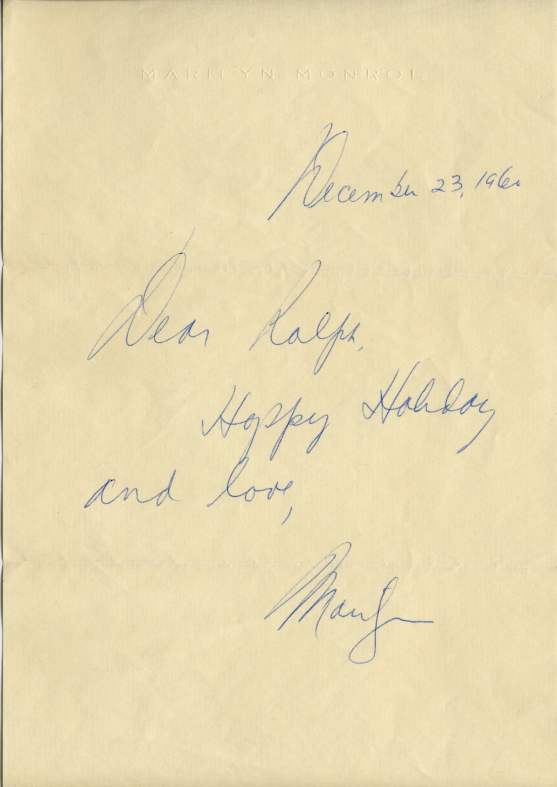 MARILYN MONROE
December 23, 1960
Dear Ralph,
Happy Holiday
and love,
Marilyn